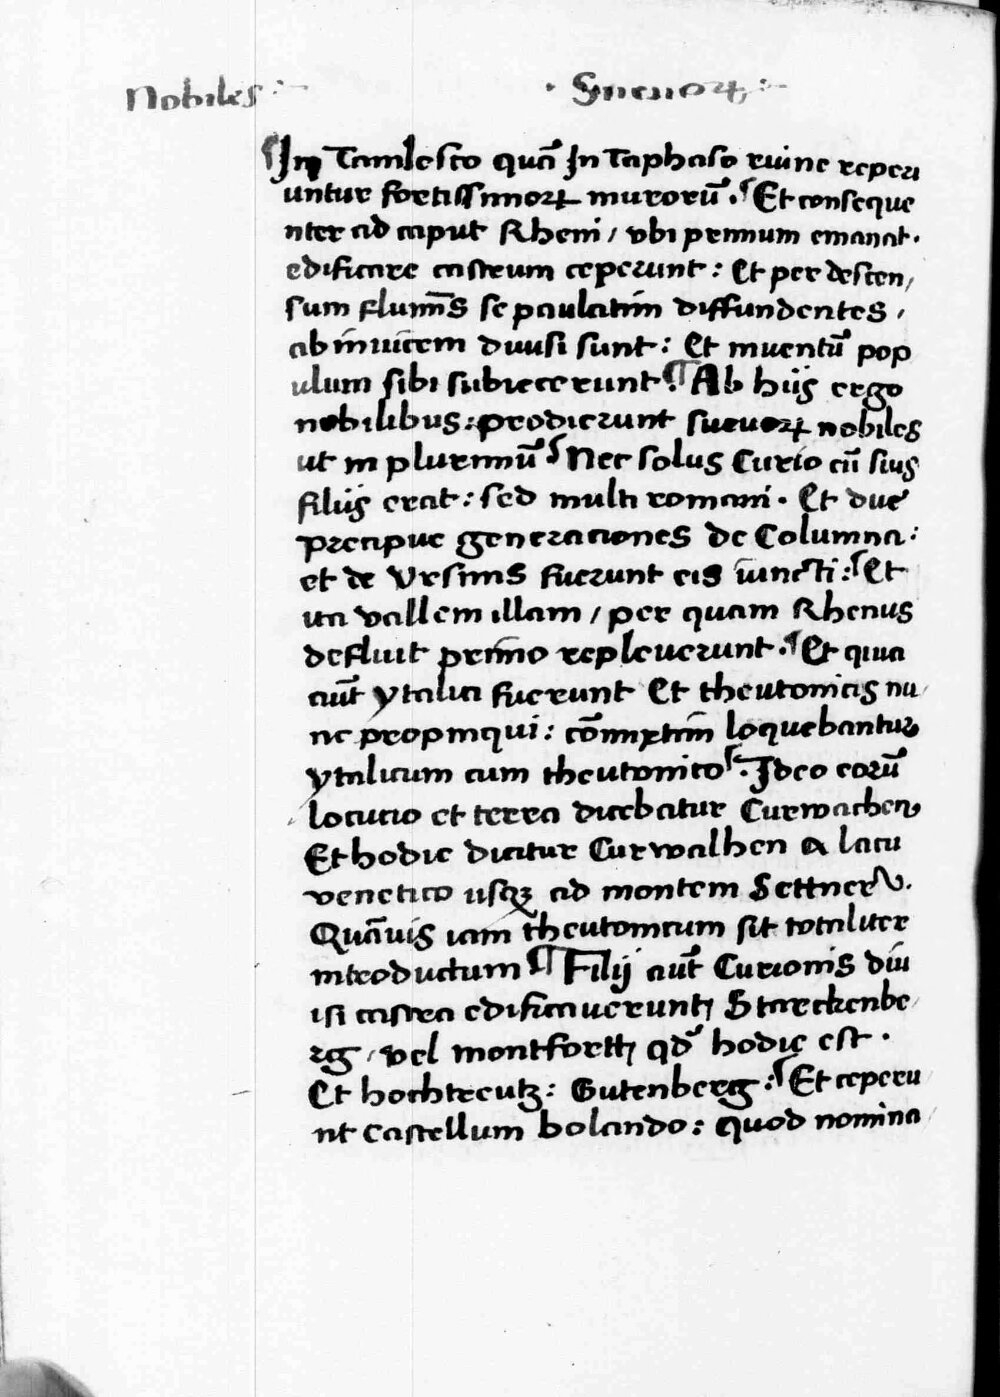 Nobiles :- · Sueuoꝝ :-
¶ In Tamlesco quā In Taphaso ruine reperi
untur fortissimoꝝ murorū . Et conseque
nter ad caput Rheni / vbi premum emanat .
edificare castrum ceperunt : Et per descen/
sum flumīs se paulatim diffundentes /
ab inuicem diuisi sunt : Et inuentū pop
ulum sibi subiecerunt . ¶ Ab hijs ergo
nobilibus : prodierunt sueuoꝝ nobiles
ut in plurimū Nec solus Curio cū siuis
filijs erat : sed multi romani . Et due
precipue generaciones de Columna :
et de Vrsinis fuerunt eis iuncti : Et
ita vallem illam / per quam Rhenus
defluit primo repleuerunt . Et quia
aūt ytalia fuerunt Et theutonicis nu/
nc propinqui : cōmixtim loquebantur
ytalicum cum theutonico . Ideo eorū
locucio et terra dicebatur Curwachen
Et hodie dicitur Curwalhen a lacu
venetico usqꝫ ad montem Settner .
Quāuis iam theutonicum sit totaliter
introductum ¶ Filij aūt Curionis diu
isi castra edificauerunt Starckenbe/
rg / vel montfortt qd̄ hodie est .
Et hochtreutz : Gutenberg : Et ceperu
nt castellum bolando : quod nomina/